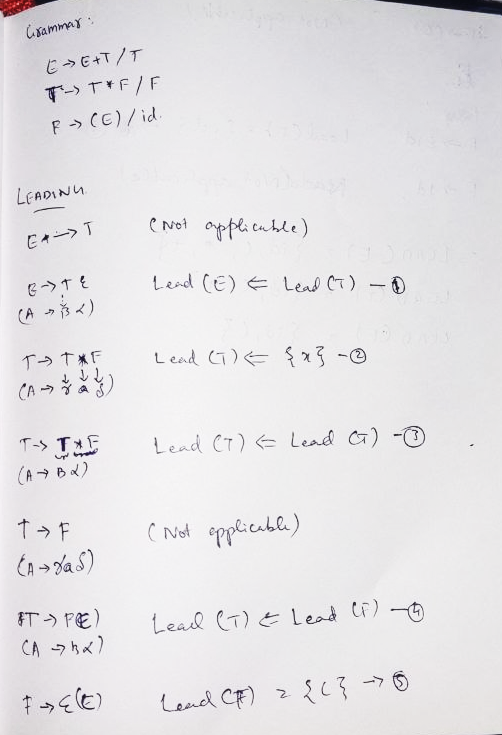 Grammar:
E → E+T / T
T → T * F / F
F → (E) / id.
LEADING
E → T (Not applicable)
E → T ε Lead (E) ⇐ Lead (T) - ①
(A → B α)
T → T * F Lead (T) ⇐ {*} - ②
(A → γ a δ)
T → T * F Lead (T) ⇐ Lead (T) - ③
(A → B α)
T → F (Not applicable)
(A → γ a δ)
Lead (T) ⇐ Lead (F) - ④
(A → B α)
F → ε(E) Lead (F) = {(} → ⑤